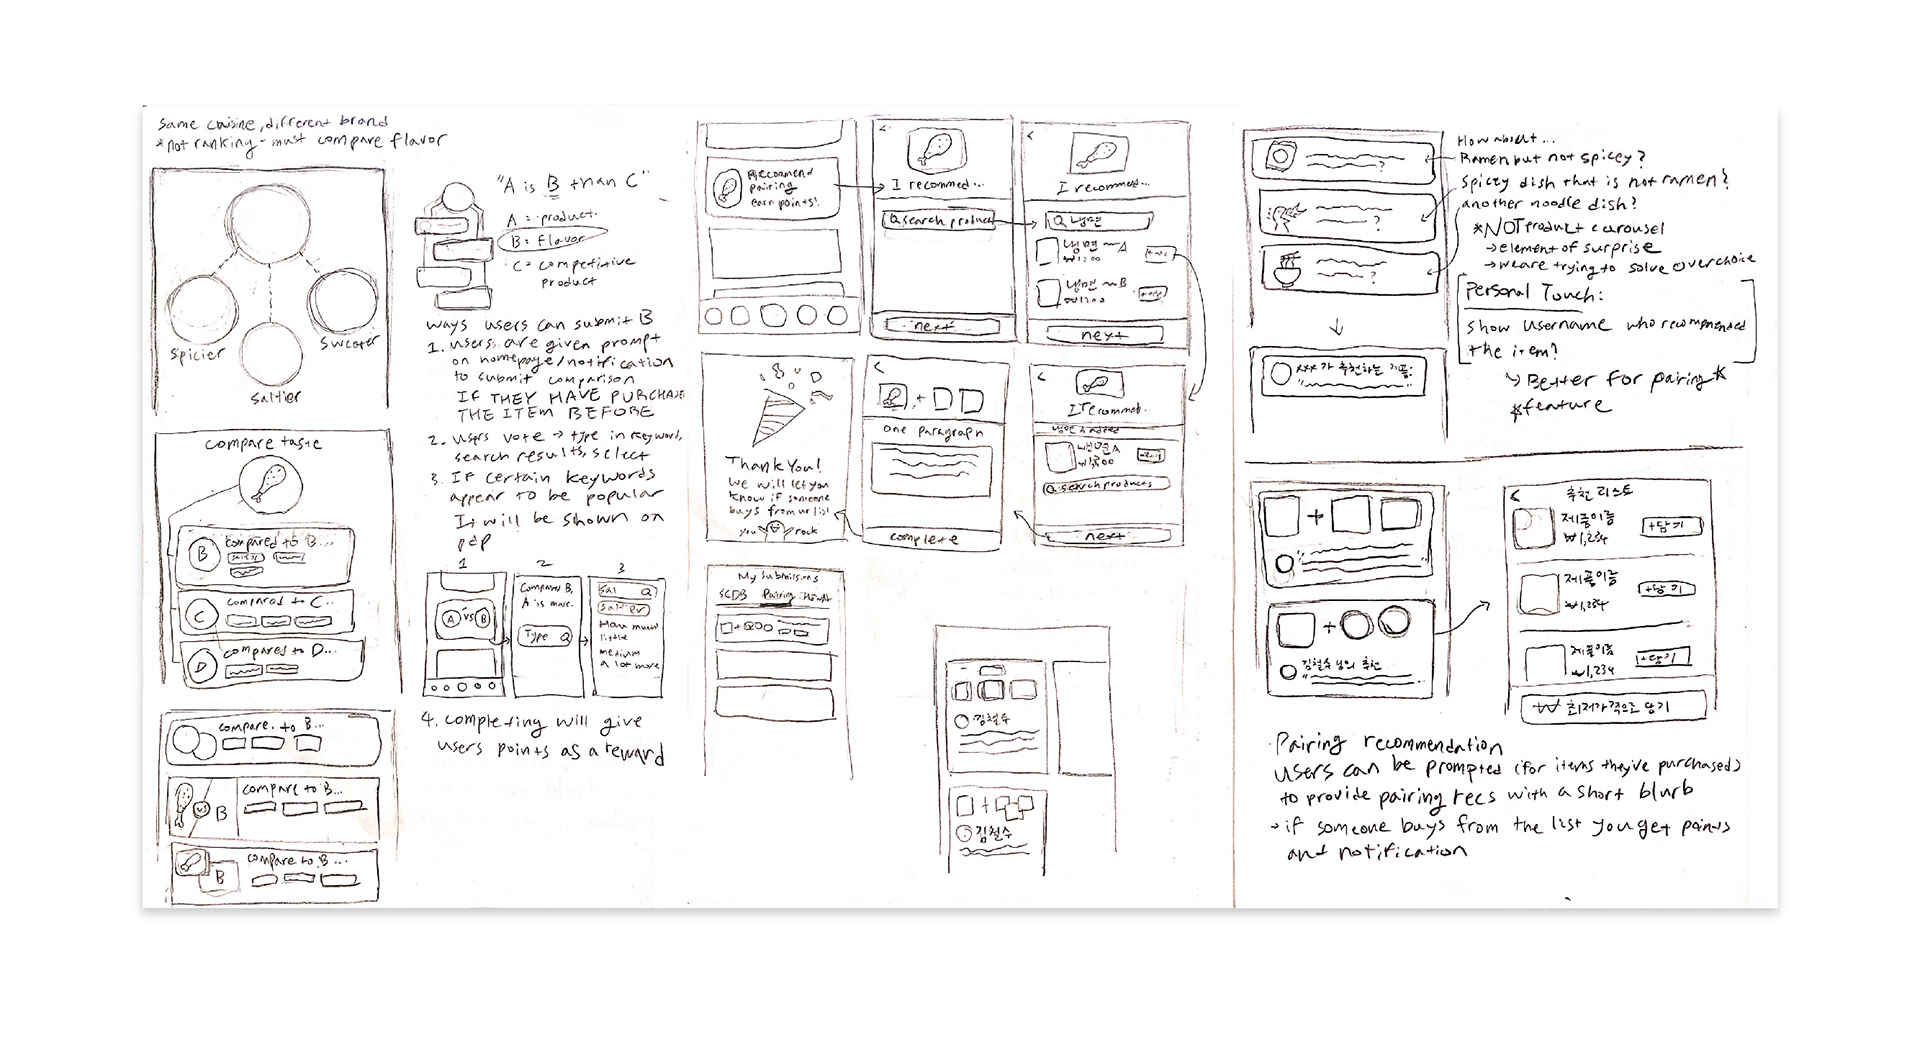 same cuisine, different brand
*not ranking - must compare flavor
spicier
saltier
sweeter
"A is B than C"
A = product.
B = flavor
C = competitive
product
ways users can submit B
1. users are given prompt
on homepage/notification
to submit comparison
IF THEY HAVE PURCHASE
THE ITEM BEFORE
2. users vote → type in keyword,
search results, select
3. If certain keywords
appear to be popular
It will be shown on
pdp
1
2
3
A vs B
Compared B,
A is more.
Type
Sal
Saltier
How much
little
medium
a lot more
4. completing will give
users points as a reward
compare taste
B
compared to B...
salty
C
compared to C..
D
compared to D...
compare. to B...
vs B
compare to B...
compare to B...
B
Recommend
pairing
earn points!
I recommed...
search product
next
I recommed...
냉면
냉면 ~A
₩1200
냉면 ~B
₩1200
next
I recommet...
냉면 A added
냉면 A
search products
next
one paragraph
complete
Thank you!
we will let you
know if someone
buys from ur list
you rock
My submissions
SCDB Pairing
김철수
김철수
How about...
Ramen but not spicey?
spicey dish that is not ramen?
another noodle dish?
*NOT product carousel
→ element of surprise
→ we are trying to solve overchoice
Personal Touch:
show username who recommended
the item?
↳ Better for pairing *
*feature
xxx가 추천하는 제품:
김철수 님의 추천
추천 리스트
제품이름
₩1,234
+담기
제품이름
₩1,234
+담기
제품이름
₩1,234
+담기
₩ 최저가격으로 담기
Pairing recommendation
users can be prompted (for items they've purchased)
to provide pairing recs with a short blurb
→ if someone buys from the list you get points
and notification